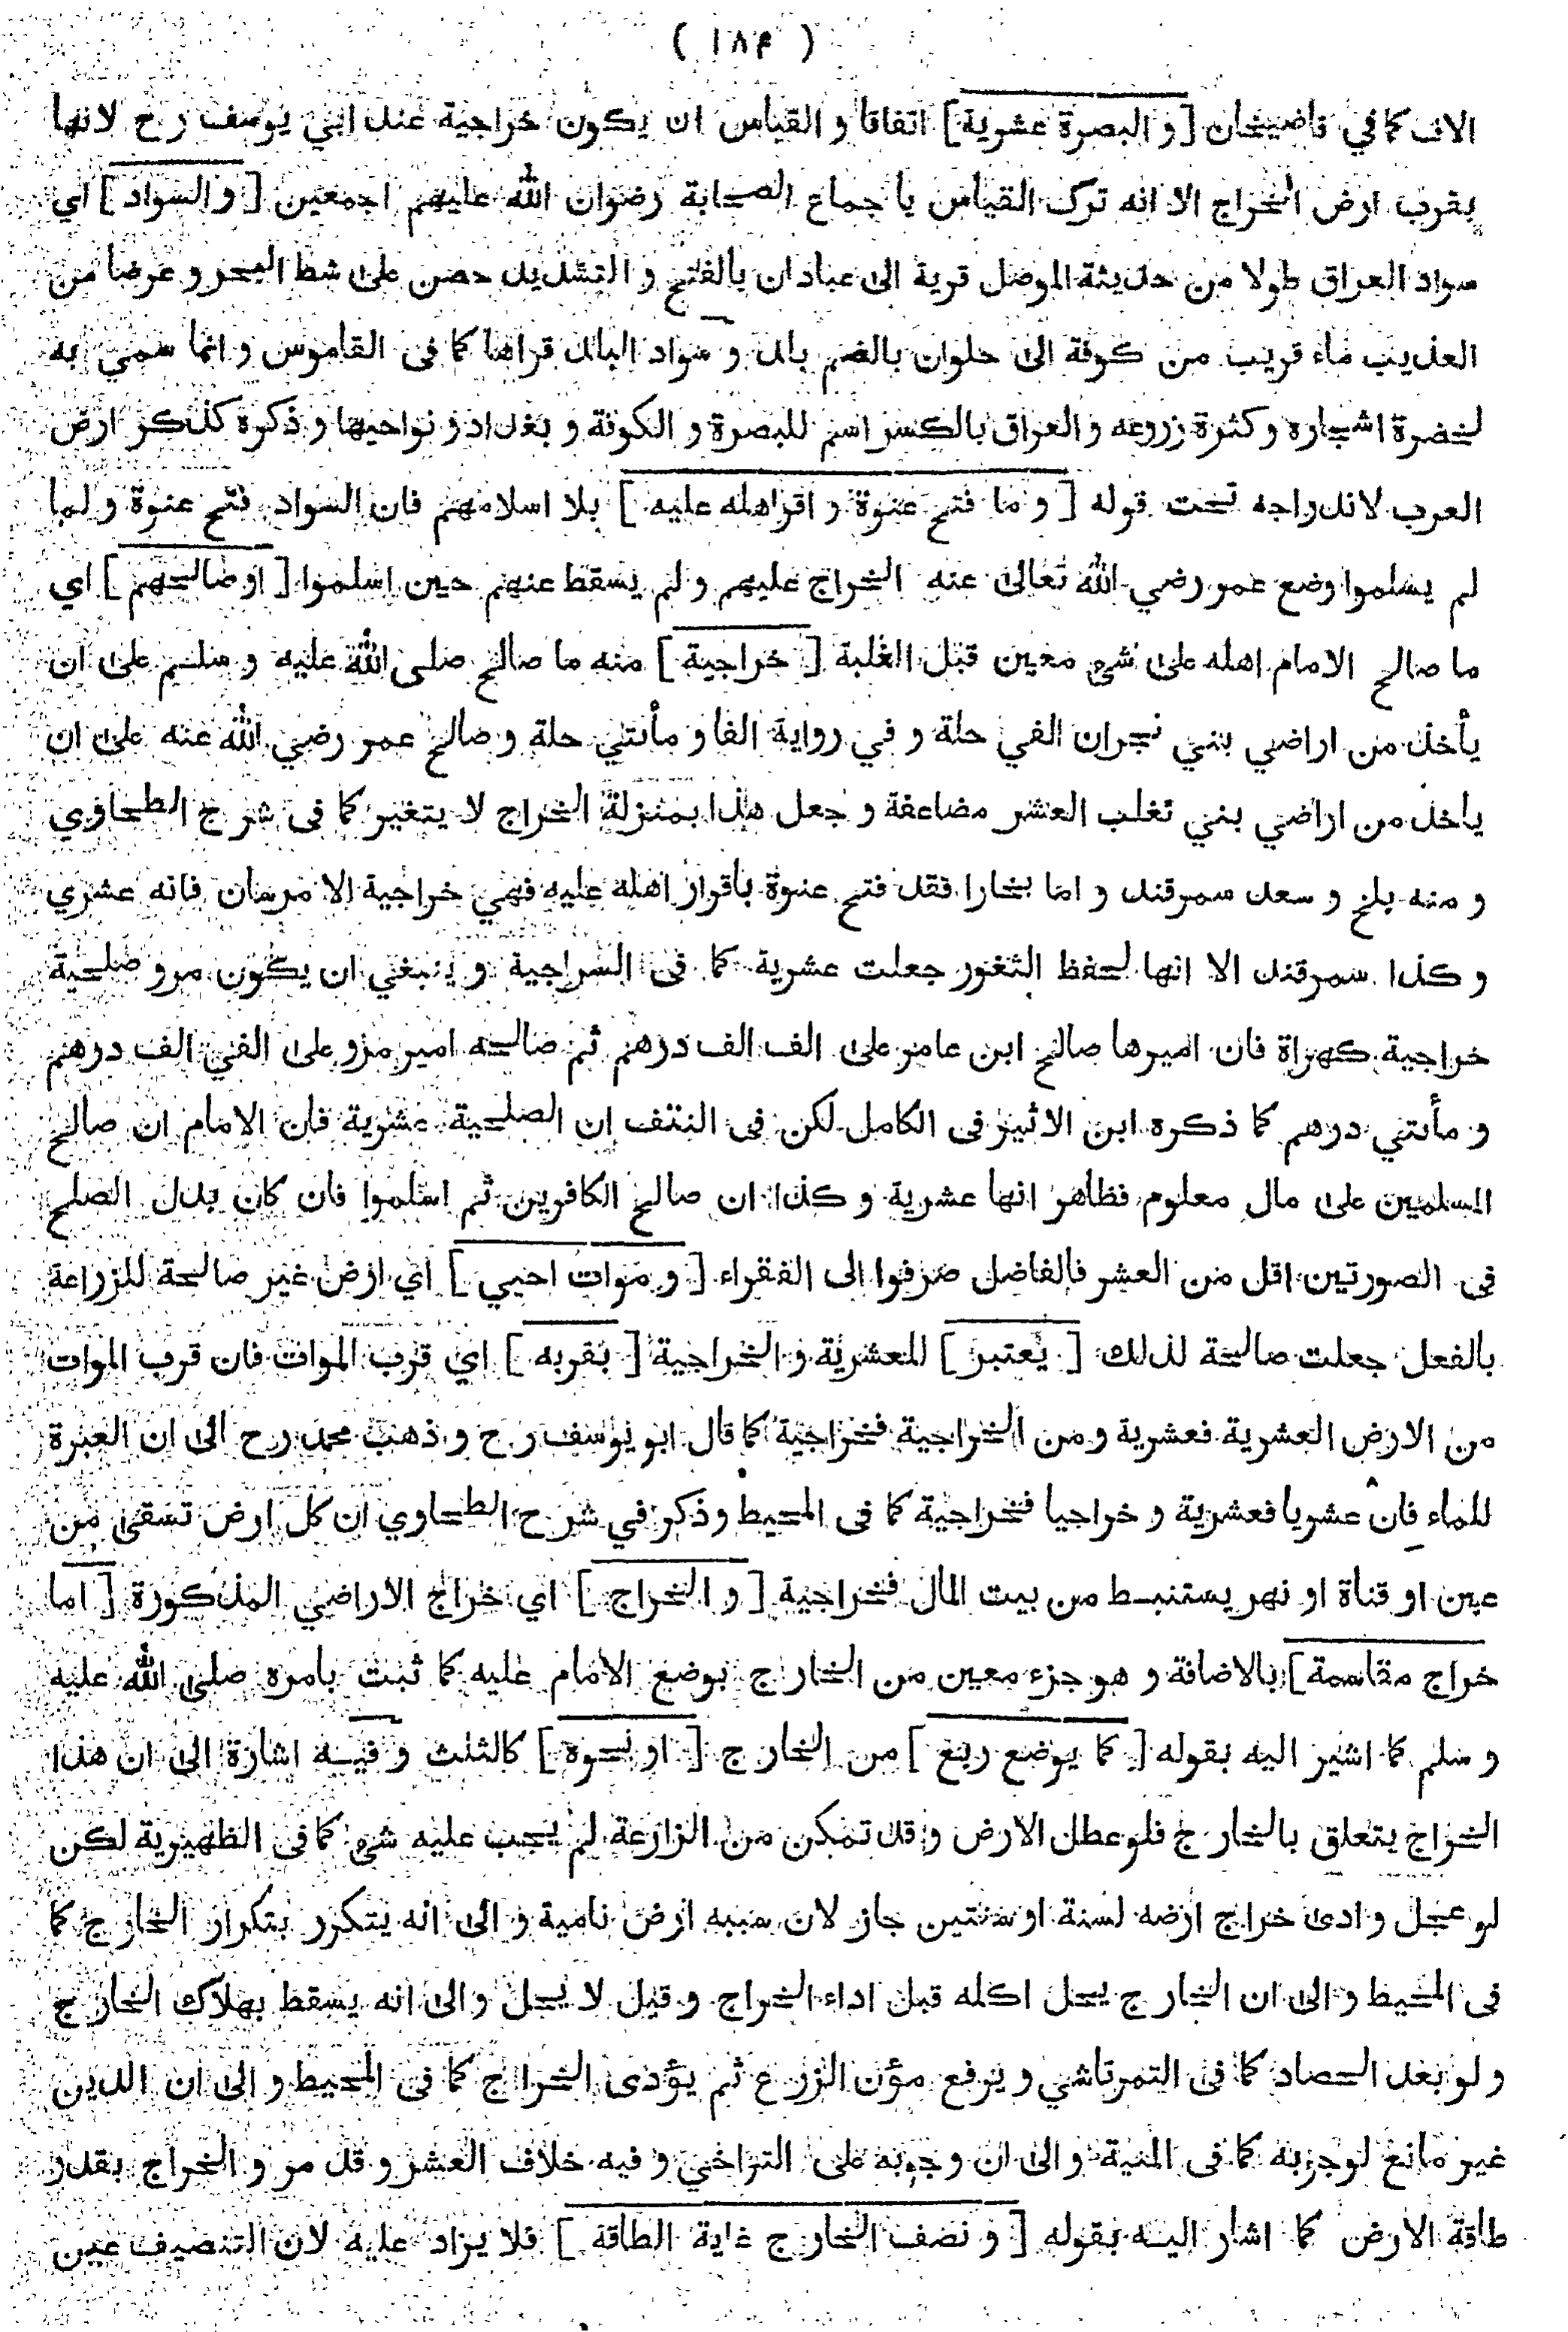 ( ١٨٤ )
الان كما في قاضيخان [ و البصرة عشرية ] اتفاقا و القياس ان يكون خراجية عند ابي يوسف ر ح لانها
بقرب ارض الخراج الا انه ترك القياس باجماع الصحابة رضوان الله عليهم اجمعين [ و السواد ] اي
سواد العراق طولا من حديثة الموصل قرية الى عبادان بالفتح و التشديد حصن على شط البحر و عرضا من
العذيب ماء قريب من كوفة الى حلوان بالضم بلد و سواد البلد قراها كما في القاموس و انما سمي به
لخضرة اشجاره و كثرة زروعه و العراق بالكسر اسم للبصرة و الكوفة و بغداد و نواحيها و ذكره كذكر ارض
العرب لاندراجه تحت قوله [ و ما فتح عنوة و اقر اهله عليه ] بلا اسلامهم فان السواد فتح عنوة و لما
لم يسلموا وضع عمر رضي الله تعالى عنه الخراج عليهم و لم يسقط عنهم حين اسلموا [ او صالحهم ] اي
ما صالح الامام اهله على شئ معين قبل الغلبة [ خراجية ] منه ما صالح صلى الله عليه و سلم على ان
يأخذ من اراضي بني نجران الفي حلة و في رواية الفا و مأتي حلة و صالح عمر رضي الله عنه على ان
ياخذ من اراضي بني تغلب العشر مضاعفة و جعل هذا بمنزلة الخراج لا يتغير كما في شرح الطحاوي
و منه بلخ و سعد سمرقند و اما بخارا فقد فتح عنوة باقرار اهله عليه فهي خراجية الا فانه عشري
و كذا سمرقند الا انها لحفظ الثغور جعلت عشرية كما في السراجية و ينبغي ان يكون مرو صلحية
خراجية كهراة فان اميرها صالح ابن عامر على الف الف درهم ثم صالحه امير مرو على الفي الف درهم
و مأتي درهم كما ذكره ابن الاثير في الكامل لكن في النتف ان الصلحية عشرية فان الامام ان صالح
المسلمين على مال معلوم فظاهر انها عشرية و كذا ان صالح الكافرين ثم اسلموا فان كان بدل الصلح
في الصورتين اقل من العشر فالفاضل صرفوا الى الفقراء [ و موات احيي ] اي ارض غير صالحة للزراعة
بالفعل جعلت صالحة لذلك [ يعتبر ] للعشرية و الخراجية [ بقربه ] اي قرب الموات فان قرب الموات
من الارض العشرية فعشرية و من الخراجية فخراجية كما قال ابو يوسف ر ح و ذهب محمد ر ح الى ان العبرة
للماء فان عشريا فعشرية و خراجيا فخراجية كما في المحيط و ذكر في شرح الطحاوي ان كل ارض تسقى من
عين او قناة او نهر يستنبط من بيت المال فخراجية [ و الخراج ] اي خراج الاراضي المذكورة [ اما
خراج مقاسمة ] بالاضافة و هو جزء معين من الخارج بوضع الامام عليه كما ثبت بامره صلى الله عليه
و سلم كما اشير اليه بقوله [ كما يوضع ربع ] من الخارج [ او نحوه ] كالثلث و فيه اشارة الى ان هذا
الخراج يتعلق بالخارج فلو عطل الارض و قد تمكن من الزارعة لم يجب عليه شئ كما في الظهيرية لكن
لو عجل و ادى خراج ارضه لسنة او سنتين جاز لان سببه ارض نامية و الى انه يتكرر بتكرار الخارج كما
في المحيط و الى ان الخارج يحل اكله قبل اداء الخراج و قيل لا يحل و الى انه يسقط بهلاك الخارج
و لو بعد الحصاد كما في التمرتاشي و يرفع مؤن الزرع ثم يؤدى الخراج كما في المحيط و الى ان الدين
غير مانع لوجوبه كما في المنية و الى ان وجوبه على التراخي و فيه خلاف العشر و قد مر و الخراج بقدر
طاقة الارض كما اشار اليه بقوله [ و نصف الخارج غاية الطاقة ] فلا يزاد عليه لان التنصيف عين